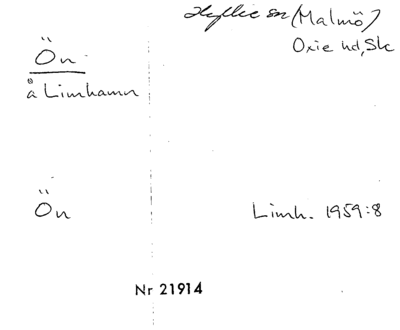 Hyllie sn (Malmö)
Oxie hd, Sk
Ön
å Limhamn
Ön
Limh. 1959:8
Nr 21914